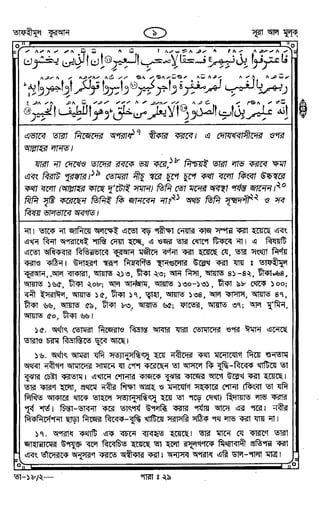 তাফহীমুল কুরআন
৯
সূরা আল মূলক
فَاعْتَرَفُوا بِذَنْبِهِمْ فَسُحْقًا لِّأَصْحَابِ السَّعِيرِ إِنَّ الَّذِينَ يَخْشَوْنَ
رَبَّهُم بِالْغَيْبِ لَهُم مَّغْفِرَةٌ وَأَجْرٌ كَبِيرٌ وَأَسِرُّوا قَوْلَكُمْ أَوِ اجْهَرُوا بِهِ
إِنَّهُ عَلِيمٌ بِذَاتِ الصُّدُورِ أَلَا يَعْلَمُ مَنْ خَلَقَ وَهُوَ اللَّطِيفُ الْخَبِيرُ
এভাবে তারা নিজেদের অপরাধ১৭ স্বীকার করবে। এ দোযখবাসীদের ওপর
আল্লাহর লানত।
যারা না দেখেও তাদের রবকে ভয় করে,১৮ নিশ্চয়ই তারা লাভ করবে ক্ষমা
এবং বিরাট পুরস্কার।১৯ তোমরা নীচু স্বরে চুপে চুপে কথা বলো কিংবা উচ্চস্বরে
কথা বলো (আল্লাহর কাছে দু'টোই সমান) তিনি তো মনের অবস্থা পর্যন্ত জানেন।২০
যিনি সৃষ্টি করেছেন তিনিই কি জানবেন না?২১ অথচ তিনি সূক্ষ্মদর্শী২২ ও সব
বিষয় ভালভাবে অবগত।
না। তাকে না জানিয়ে অলক্ষেই এতো বড় পরীক্ষা নেয়ার কাজ সম্পন্ন করা হয়েছে এবং
এখন বিনা অপরাধেই শাস্তি দেয়া হচ্ছে, এ ওজর তারা পেশ করতে পারবে না। এ বিষয়টি
এতো অধিকবার বিভিন্নভাবে কুরআন মজীদে বর্ণনা করা হয়েছে যে, তার সংখ্যা নির্ণয়
করাও কঠিন। উদাহরণ স্বরূপ নিম্নবর্ণিত স্থানগুলোর উল্লেখ করা যায় : তাফহীমুল
কুরআন, আল বাকারা, আয়াত ২১৩, টীকা ২৩০; আন নিসা, আয়াত ৪১-৪২, টীকা-৬৪,
আয়াত ১৬৫, টীকা ২০৮; আল আনআম, আয়াত ১৩০-১৩১, টীকা ৯৮ থেকে ১০০;
বনী ইসরাঈল, আয়াত ১৫, টীকা ১৭, ত্বাহা, আয়াত ১৩৪, আল কাসাস, আয়াত ৪৭,
টীকা ৬৬, আয়াত ৫৯, টীকা ৮৩, আয়াত ৬৫; ফাতের, আয়াত ৩৭; আল মু'মিন,
আয়াত ৫০, টীকা ৬৬।
১৫. অর্থাৎ তোমরা নিজেরাও বিভ্রান্ত আবার যারা তোমাদের ওপর ঈমান এনেছে
তারাও চরম বিভ্রান্তিতে ডুবে আছে।
১৬. অর্থাৎ আমরা যদি সত্যানুসন্ধিৎসু হয়ে নবীদের কথা মনোযোগ দিয়ে শুনতাম
অথবা নবীগণ আমাদের সামনে যা পেশ করেছেন তা আসলে কি বুদ্ধি-বিবেক খাটিয়ে তা
বুঝার চেষ্টা করতাম। এখানে শোনার কাজকে বুঝার কাজের আগে উল্লেখ করা হয়েছে।
তার কারণ হলো, প্রথমে নবীর শিক্ষা আগ্রহ ও মনোযোগ সহকারে শোনা কিংবা তা যদি
লিখিত আকারে থাকে তাহলে সত্যানুসন্ধিৎসু হয়ে তা পড়ে দেখা হিদায়াত লাভ করার
পূর্ব শর্ত। চিন্তা-ভাবনা করে তাৎপর্য উপলব্ধি করার পর্যায় আসে এর পরে। নবীর
দিকনির্দেশনা ছাড়া নিজের বিবেক-বুদ্ধি খাটিয়ে সরাসরি সঠিক পথ লাভ করা যায় না।
১৭. অপরাধ কথাটি এক বচনে ব্যবহৃত হয়েছে। তার মানে যে কারণে তারা
জাহান্নামের উপযুক্ত বলে বিবেচিত হয়েছে তা হলো রসূলগণকে মিথ্যাবাদী প্রতিপন্ন করা
এবং তাঁদেরকে অনুসরণ করতে অস্বীকার করা। অন্যসব অপরাধ এরি ডাল-পালা মাত্র।
তা-১৮/২—
পারা : ২৯